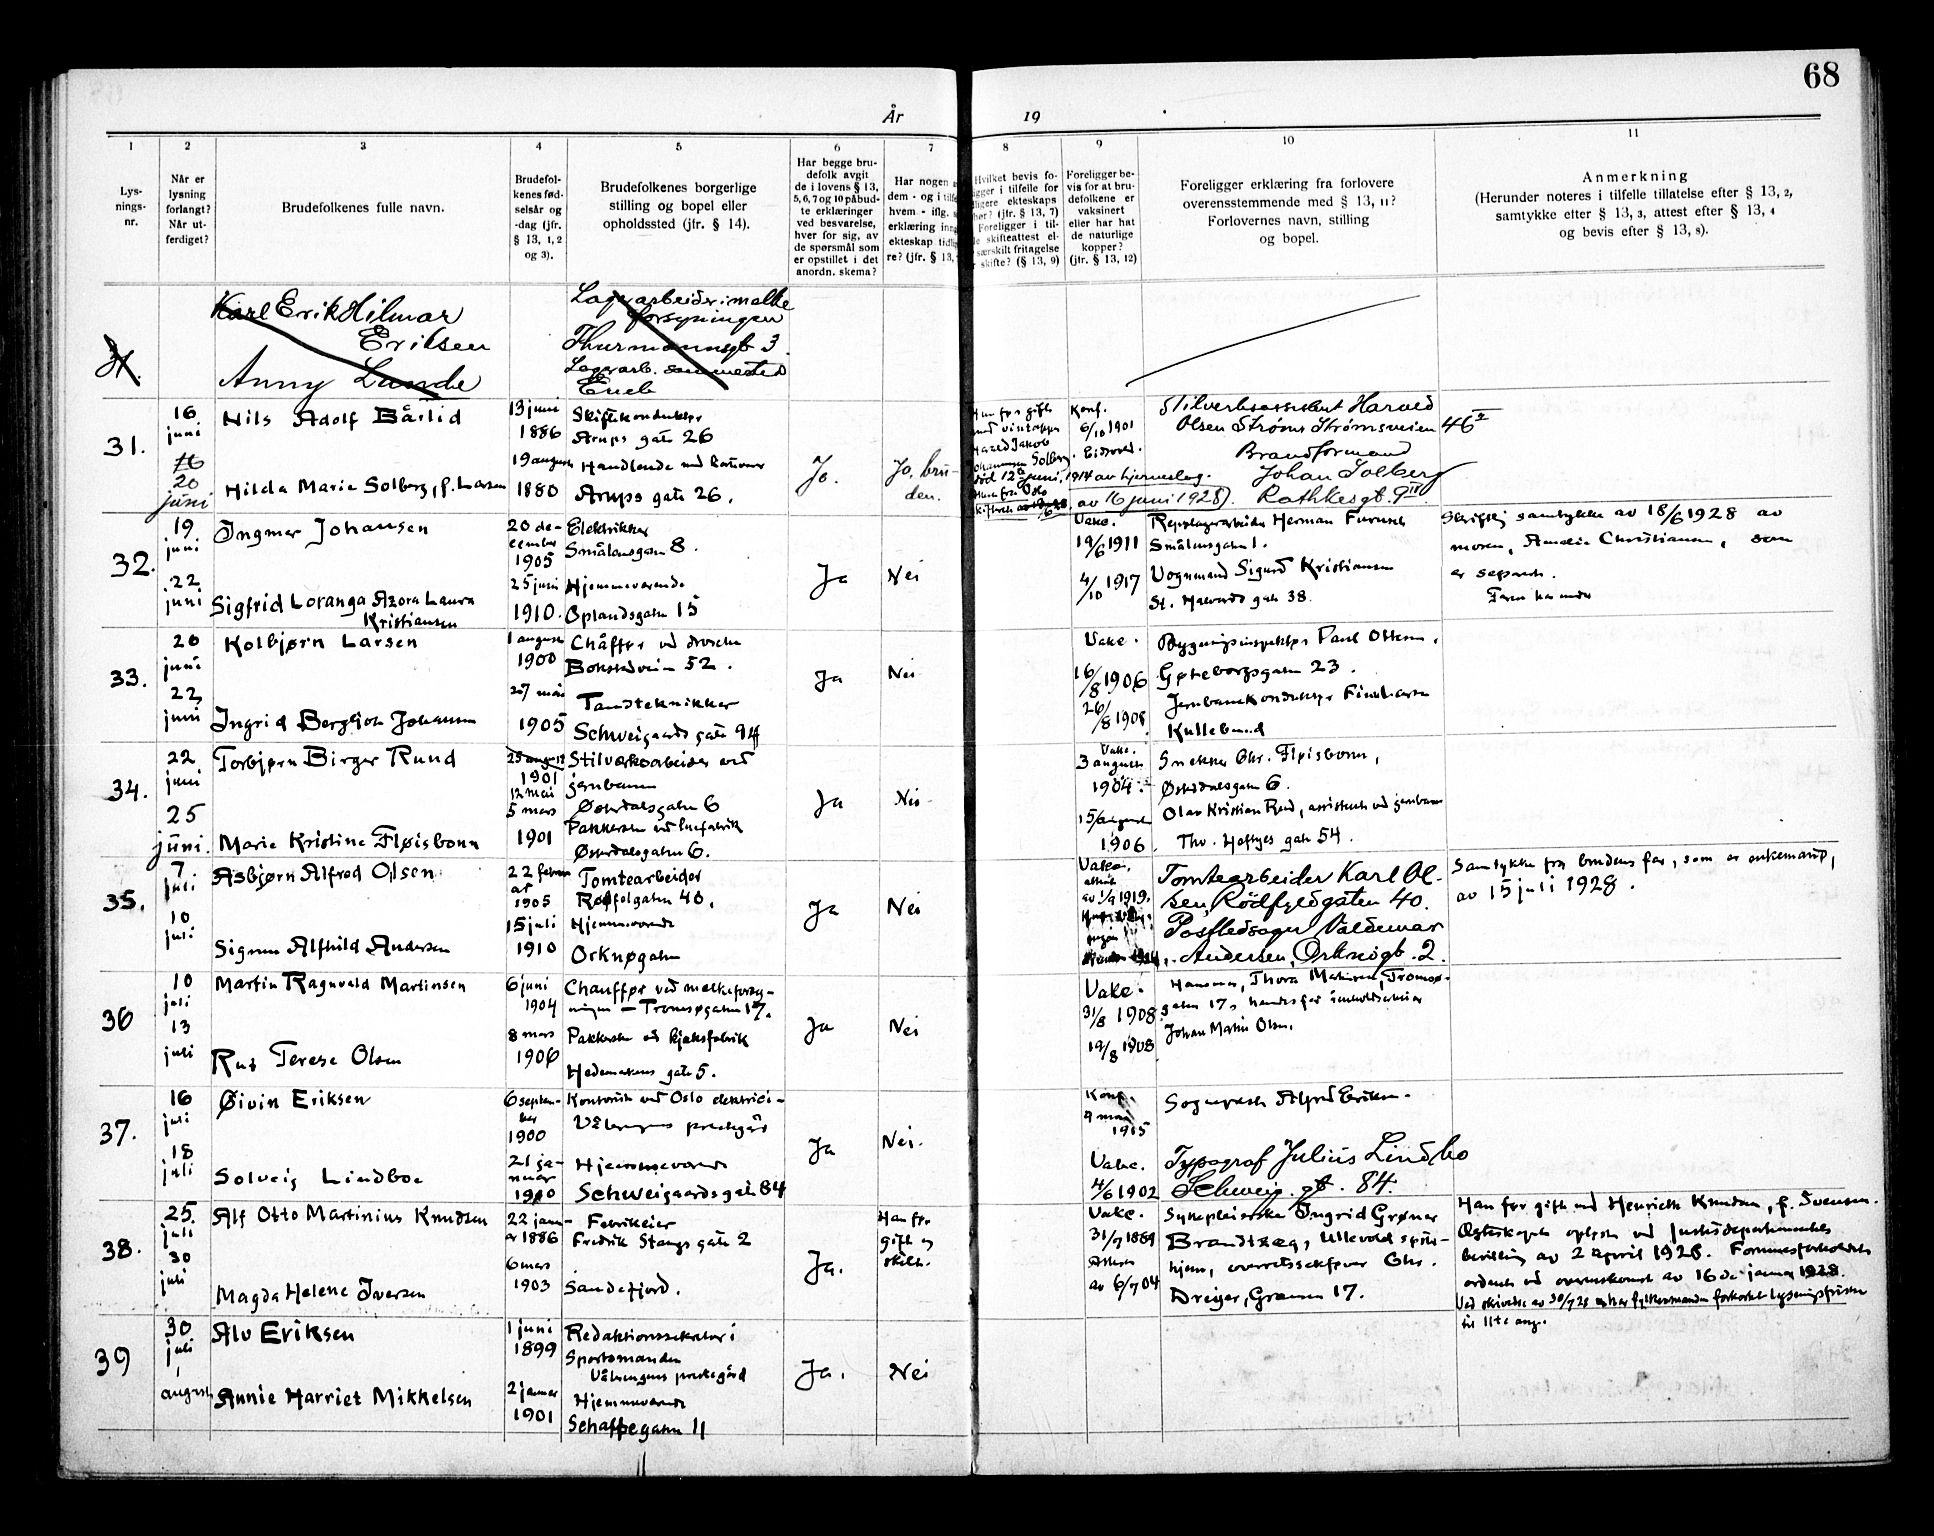 68
År 19
1
2
3
4
5
6
7
8
9
10
11
Lys-
nings-
nr.
Når er
lysning
forlangt?
Når ut-
ferdiget?
Brudefolkenes fulle navn.
Brudefol-
kenes fød-
selsår og
-dag (jfr.
§ 13, 1, 2
og 3).
Brudefolkenes borgerlige
stilling og bopel eller
opholdssted (jfr. § 14).
Har begge bru-
defolk avgit
de i lovens § 13,
5, 6, 7 og 10 påbud-
te erklæringer
ved besvarelse,
hver for sig, av
de spørsmål som
er opstillet i det
anordn. skema?
Har nogen
dem - og i
hvem - iflg.
erklæring
ekteskap
re? (jfr. § 13,
Hvilket bevis fo-
i tilfelle for
ekteskaps
(jfr. § 13, 7)
Foreligger i til-
skifteattest el-
særskilt fritagelse
skifte? (§ 13, 9)
Foreligger be-
vis for at bru-
defolkene er
vaksinert
eller har hat
de naturlige
kopper?
(jfr. § 13, 12)
Foreligger erklæring fra forlovere
overensstemmende med § 13, 11?
Forlovernes navn, stilling
og bopel.
Anmerkning
(Herunder noteres i tilfelle tillatelse efter § 13, 2,
samtykke efter § 13, 3, attest efter § 13, 4
og bevis efter § 13, 8).
31.
Karl Erik Hilmar
Eriksen
Anny Lunde
Lagerarbeider i melke
forsyningen
Thurmannsgt 3
Lagerarb. sammested
31.
16
juni
16
20
juni
Nils Adolf Bårlid
Hilda Marie Solberg, f. Larsen
13 juni
1886
19 august
1880
Skiftekonduktør
Arups gate 26
Arups gate 26.
Ja.
Ja, bru-
den.
Hun før gift
Harald Jakob
Johannesen Solberg
død 12te juni, 1914 av hjerneslag.
av 16 juni 1928)
Konf.
6/10 1901
Eidsvold.
Stilverksassistent Harald
Olsen Strøm Strømsveien 46
Brandformand
Johan Solberg
Rathkesgt. 9
32.
19
juni
22
juni
Ingmar Johansen
Sigfrid Loranga Azora Laura
Kristiansen
20 de-
cember
1905
25 juni
1910.
Elektriker
Smålensgaten 8.
Hjemmeværende
Oplandsgaten 15
Ja
Nei
Vake.
19/6 1911
4/10 1917
Herman Furuseth
Smålensgaten 1.
Vognmand Sigurd Kristiansen
St. Halvards gate 38.
Skriftlig samtykke av 18/6 1928 av
moren, Amalie Christiansen, som
er separert.
33.
20
juni
22
juni
Kolbjørn Larsen
Ingrid Bergljot Johansen
1 august
1900
27 mai
1905
Chåffør ved drosche
52.
Tandtekniker
Schweigaards gate 94
Ja
Nei
Vake.
16/8 1906
26/8 1908
Paul Ottesen.
Gøteborggaten 23.
Jernbanekonduktør
Kullebund
34.
22
juni
25
juni.
Torbjørn Birger Rund
Marie Kristine Fløisbonn
1901
12 mai
5 mars
1901
Stilverksarbeider ved
jernbanen
Østerdalsgaten 6
Pakkerske ved
Østerdalsgaten 6.
Ja
Nei
Vake.
3 august
1904.
15/august
1906.
Snekker Chr. Fløisbonn,
Østerdalsgaten 6.
Olav Kristian Rud, assistent ved jernbanen
Thv. Heftyes gate 54.
35.
7
juli
10
juli
Asbjørn Alfred Olsen
Signe Alfhild Andersen
22 febru-
ar
1905
15 juli
1910
Tomtearbeider
40.
Hjemmeværende
Orknøgaten
Ja
Nei
Vake.
attest
av 1/9 1919.
Tomtearbeider Karl Ol-
sen, Rödfyldgaten 40.
Postledsager Valdemar
Andersen, Orknögt. 2.
Samtykke fra brudens far, som er enkemand,
av 15 juli 1928.
36
10
juli
13
juli
Martin Ragnvald Martinsen
Rut Terese Olsen
6 juni
1904
8 mars
1906
Chauffør ved melkeforsy-
ningen - Tromsøgaten 17.
Pakkerske ved kjeksfabrik
Hedemarkens gate 5.
Ja
Nei
Vake.
31/8 1908
19/8 1908
Thora Martinsen, Tromsø-
gaten 17,
Johan Martin Olsen.
37.
16
juli
18
juli
Øivin Eriksen
Solveig Lindboe
6 septem-
ber
1900
21 ja-
nuar
1900
Kontorist ved Oslo elektrici-
Vålerengens prestegård
Hjemmeværende
Schweigaardsgate 84
Ja
Nei.
Konf.
9 mai
1915
Vake.
4/6 1902
Sogneprest Alfred Eriksen.
Typograf Julius Lindbo
Schweig. gt. 84.
38.
25.
juli
30
juli
Alf Otto Martinius Knudsen
Magda Helene Iversen
22 janu-
ar 1886
6 mars
1903
Fabrikeier
Fredrik Stangs gate 2
Sandefjord.
Ja.
Han før
gift og
skilt.
Vake.
31/7 1889
Attest
av 6/7 04
Sykepleierske Ingrid Grøner
Brandtzæg, Ullevold syke-
hjem, overretssakfører Chr.
Dreyer, Gramen 17.
Han før gift med Henriette Knudsen, f. Svensen.
Egteskapet opløst ved Justisdepartementets
bevilling av 2 april 1928. Formuesforholdet
ordnet ved overenskomst av 16de januar 1928.
Ved skrivelse av 30/7 28 har fylkesmannen forkortet lysningsfristen
til 11te aug.
39
30
juli
1
august
Alv Eriksen
Annie Harriet Mikkelsen
1 juni
1899
2 januar
1901
Redaktionssekretær i
Sportsmanden
Vålerengens prestegård
Hjemmeværende
Schappegaten 11
Ja.
Nei